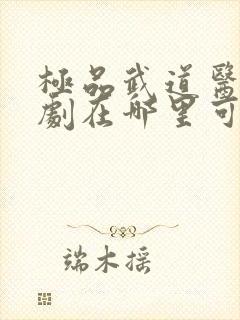 極品武道醫
劇在哪里可
端木摇